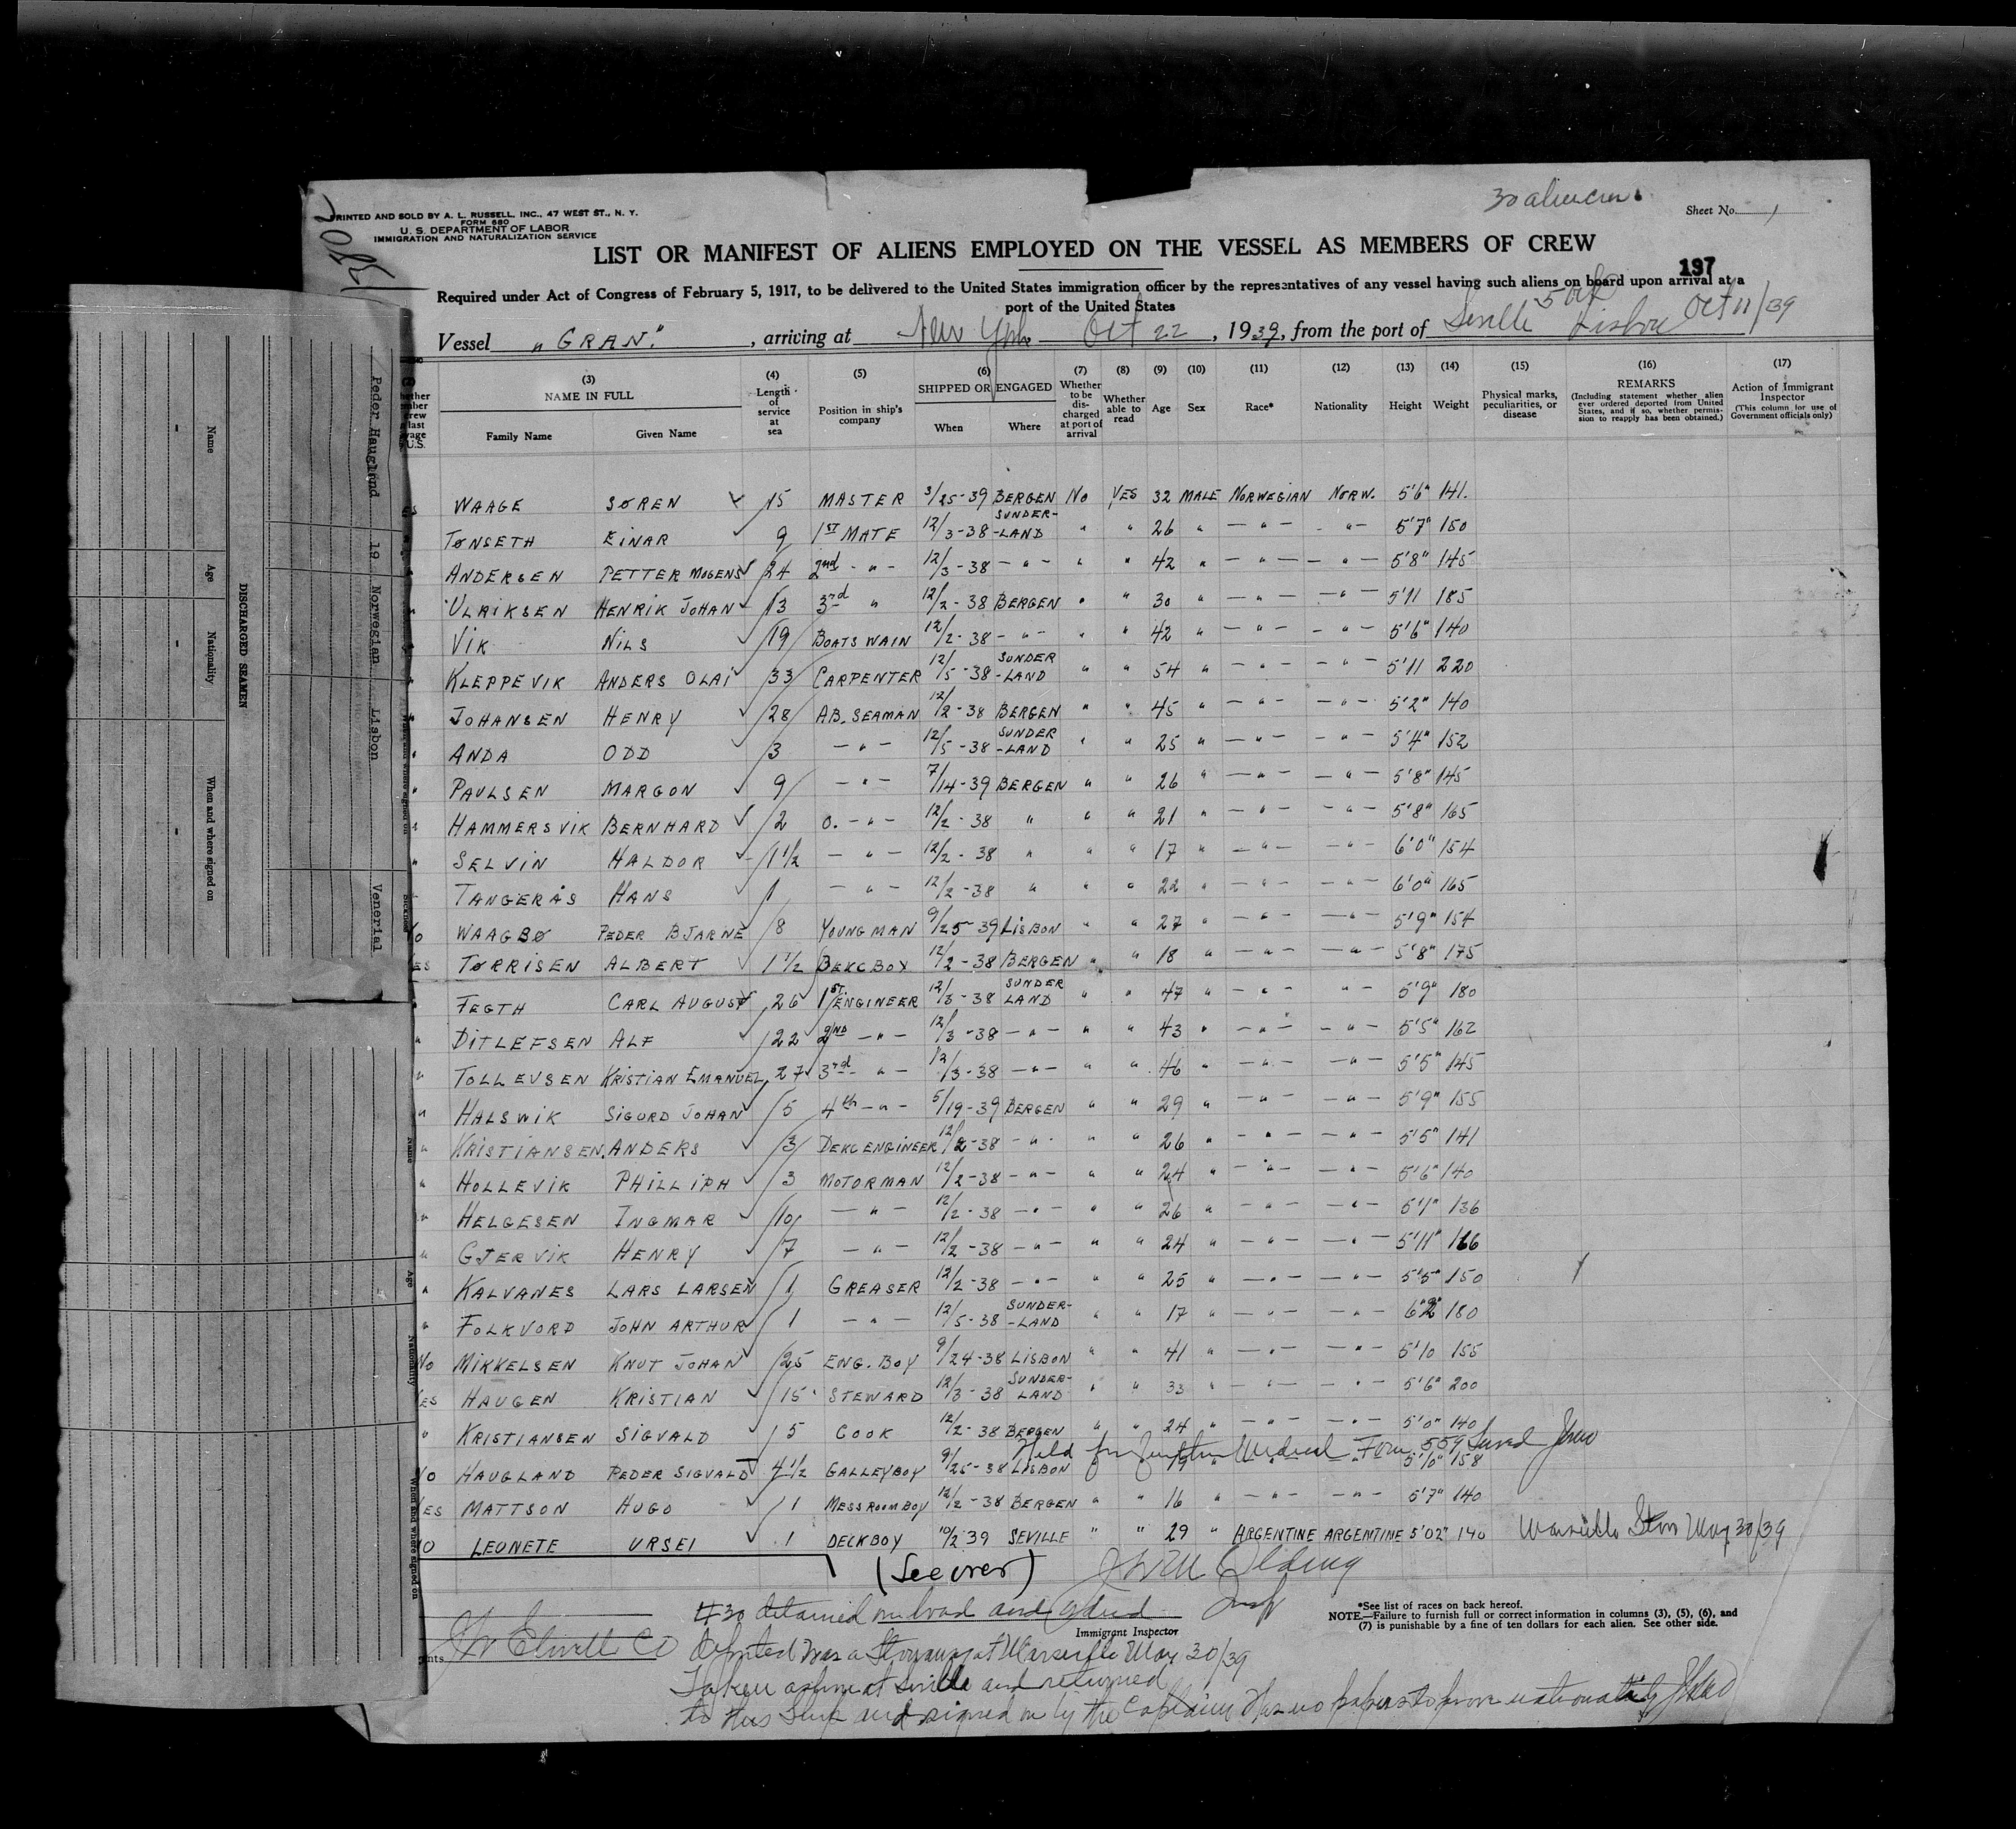 30 alien crew
Sheet No. 1
PRINTED AND SOLD BY A. L. RUSSELL, INC., 47 WEST ST., N. Y.
FORM 680
U. S. DEPARTMENT OF LABOR
IMMIGRATION AND NATURALIZATION SERVICE
LIST OR MANIFEST OF ALIENS EMPLOYED ON THE VESSEL AS MEMBERS OF CREW
197
Required under Act of Congress of February 5, 1917, to be delivered to the United States immigration officer by the representatives of any vessel having such aliens on board upon arrival at a
port of the United States
Vessel "GRAN", arriving at New York Oct 22, 1939, from the port of Seville 5 Oct Lisbon Oct 11/39
(3) (4) (5) (6) (7) (8) (9) (10) (11) (12) (13) (14) (15) (16) (17)
NAME IN FULL
Family Name Given Name
Length of service at sea
Position in ship's company
SHIPPED OR ENGAGED
When Where
Whether to be discharged at port of arrival
Whether able to read
Age Sex Race* Nationality Height Weight
Physical marks, peculiarities, or disease
REMARKS
(Including statement whether alien ever ordered deported from United States, and if so, whether permission to reapply has been obtained.)
Action of Immigrant Inspector
(This column for use of Government officials only)
WAAGE SØREN 15 MASTER 3/25-39 BERGEN NO YES 32 MALE NORWEGIAN NORW. 5'6" 141.
TØNSETH EINAR 9 1ST MATE 12/3-38 SUNDER-LAND " " 26 " - " - - " - 5'7" 150
ANDERSEN PETTER MOGENS 24 2nd - " - 12/3-38 - " - " " 42 " - " - - " - 5'8" 145
ULRIKSEN HENRIK JOHAN 13 3rd " 12/2-38 BERGEN " " 30 " - " - - " - 5'11 185
VIK NILS 19 BOATSWAIN 12/2-38 - " - " " 42 " - " - - " - 5'6" 140
KLEPPEVIK ANDERS OLAI 33 CARPENTER 12/5-38 SUNDER-LAND " " 54 " - " - - " - 5'11 220
JOHANSEN HENRY 28 A.B. SEAMAN 12/2-38 BERGEN " " 45 " - " - - " - 5'2" 140
ANDA ODD 3 - " - 12/5-38 SUNDER-LAND " " 25 " - " - - " - 5'4" 152
PAULSEN MARGON 9 - " - 7/14-39 BERGEN " " 26 " - " - - " - 5'8" 145
HAMMERSVIK BERNHARD 2 O. - " - 12/2-38 " " " 21 " - " - - " - 5'8" 165
SELVIN HALDOR 1 1/2 - " - 12/2-38 " " " 17 " - " - - " - 6'0" 154
TANGERÅS HANS 1 - " - 12/2-38 " " " 22 " - " - - " - 6'0" 165
NO WAAGBØ PEDER BJARNE 8 YOUNGMAN 9/25-39 LISBON " " 27 " - " - - " - 5'9" 154
YES TØRRISEN ALBERT 1 1/2 DEKCBOY 12/2-38 BERGEN " " 18 " - " - - " - 5'8" 175
FEGTH CARL AUGUST 26 1ST ENGINEER 12/3-38 SUNDERLAND " " 47 " - " - " - 5'9" 180
DITLEFSEN ALF 22 2ND - " - 12/3-38 - " - " " 43 " - " - - " - 5'5" 162
TOLLEVSEN KRISTIAN EMANUEL 27 3rd - " - 12/3-38 - " - " " 46 " - " - - " - 5'5" 145
HALSWIK SIGURD JOHAN 5 4th - " - 5/19-39 BERGEN " " 29 " - " - - " - 5'9" 155
KRISTIANSEN, ANDERS 3 DEKC ENGINEER 12/2-38 - " - " " 26 " - " - - " - 5'5" 141
HOLLEVIK PHILLIPH 3 MOTORMAN 12/2-38 - " - " " 24 " - " - - " - 5'6" 140
HELGESEN INGMAR 10 - " - 12/2-38 - " - " " 26 " - " - - " - 5'1" 136
GJERVIK HENRY 7 - " - 12/2-38 - " - " " 24 " - " - - " - 5'11" 166
KALVANES LARS LARSEN 1 GREASER 12/2-38 - " - " " 25 " - " - - " - 5'5" 150
FOLKVORD JOHN ARTHUR 1 - " - 12/5-38 SUNDER-LAND " " 17 " - " - - " - 6'2" 180
NO MIKKELSEN KNUT JOHAN 25 ENG. BOY 9/24-38 LISBON " " 41 " - " - - " - 5'10 155
YES HAUGEN KRISTIAN 15 STEWARD 12/3-38 SUNDER-LAND " " 33 " - " - - " - 5'6" 200
KRISTIANSEN SIGVALD 5 COOK 12/2-38 BERGEN " " 24 " - " - - " - 5'0" 140
Held for further Medical Form 559 Served
NO HAUGLAND PEDER SIGVALD 4 1/2 GALLEYBOY 9/25-38 LISBON 19 5'10" 158
YES MATTSON HUGO 1 MESSROOMBOY 12/2-38 BERGEN " " 16 " - " - - " - 5'7" 140
NO LEONETE URSEI 1 DECKBOY 10/2 39 SEVILLE " " 29 " ARGENTINE ARGENTINE 5'02" 140 Marseille Stow May 30/39
(See over)
#30 detained on board and
Immigrant Inspector
Admitted was a Stowaway at Marseille May 30/39
Taken ashore at Seville and returned
to this Ship and signed on by the Captain Has no papers to prove nationality
*See list of races on back hereof.
NOTE.—Failure to furnish full or correct information in columns (3), (5), (6), and
(7) is punishable by a fine of ten dollars for each alien. See other side.
DISCHARGED SEAMEN
Name Age Nationality When and where signed on
Peder Haugland 19 Norwegian Lisbon Venerial
Name Age Nationality When and where signed on